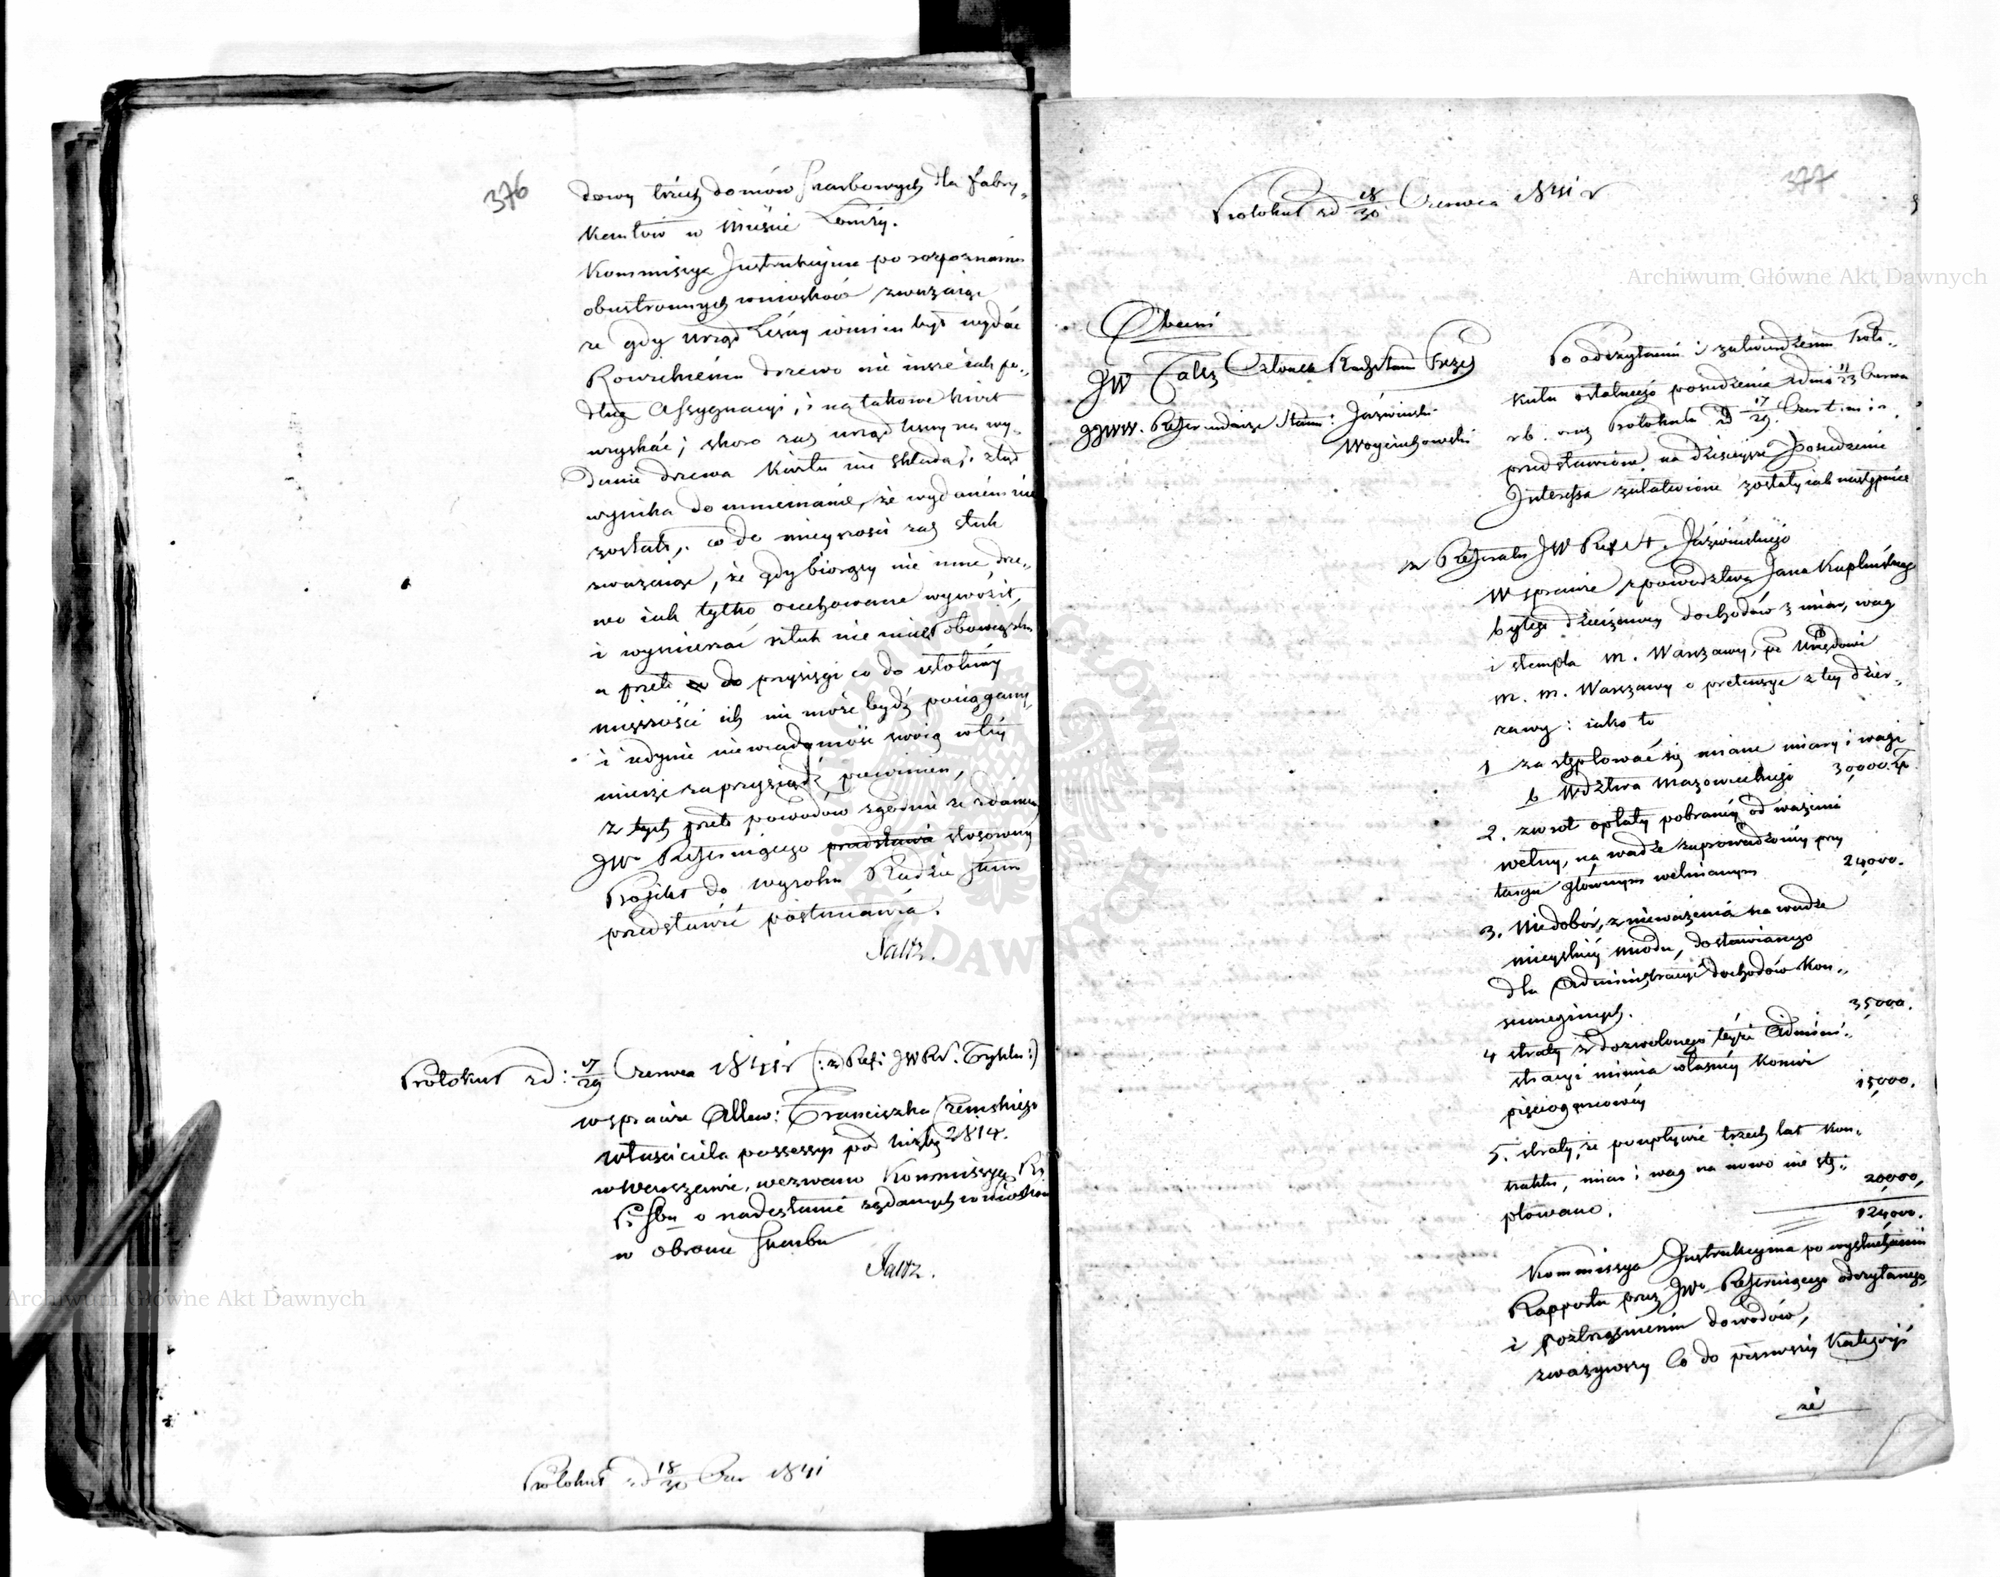 376
dowy trzech domów skarbowych dla fabry„
kantów w mieście Łomży.
Kommissya Instrukcyjna po rozpoznaniu
obustronnych wniosków zważając
że gdy Urząd Leśny winien był wydać
drzewo nie inne jak po„
dług Assygnacyi, i na takowe kwit
uzyskać; skoro zaś urząd leśny na wy„
danie drzewa kwitu nie składa, ztąd
wynika domniemanie, że wydanem nie
zostało, co do mieyscości zaś sztuk
zważając, że gdy biorący nie inne drze„
wo jak tylko ocechowane wywoził,
i wymierzać sztuk nie miał obowiązku
a przeto do przysięgi co do istotnéy
ich nie może bydź pociągany,
i jedynie niewiadomość swoią w téy
mierze zaprzysiądz powinien,
z tych przeto powodów zgodnie ze zdaniem
JW Referuiącego stosowny
Projekt do wyroku Radzie Stanu
przedstawić postanawia.
Protokuł zd: 17/29 Czerwca 1841 r (: z Ref: JW RS. :)
w sprawie Franciszka
właściciela possessyi pod liczbą 2814.
w Warszawie, wezwano Kommissyą R
P. i Sbu o nadesłanie żądanych wniosków
w obronie Skarbu
Protokuł zd 18/30 Czer 1841
377
Protokuł zd 18/30 Czerwca 1841 r
Obecni
JW Członek Rady Stanu Prezes
JJWW. Referendarze Stanu: Jaźwiński
Woyciechowski
Po odczytaniu i zatwierdzeniu Proto„
kułu ostatniego posiedzenia zdnia 11/23 Czerwca
r b. oraz Protokułu zd 17/29
przedstawione na dzisieysze Posiedzenie
Interessa załatwione zostały jak następuie
z Referatu JW Ref St. Jaźwińskiego
W sprawie z powództwa Jana
byłego dzierżawcy dochodów z miar, wag
i stempla m. Warszawy, pko Urzędowi
m. m. Warszawy o pretensye z tey dzier„
żawy: iako to
1 za stęplować się miane miary i wagi
b Wdztwa Mazowieckiego 30,000. zp
2. zwrot opłaty pobraney od ważenia
wełny, na wadze zaprowadzoney przy
targu głównym wełnianym 24000.
3. Niedobór, z nieważenia na wadze
mieyskiéy miodu, dostawianego
dla Administracyi dochodów kon„
sumcyinych. 35000.
4 straty z dozwolonego teyże Admini„
stracyi miania własnéy konwi
pięciogarcowéy 15000.
5. straty, że po upływie trzech lat kon„
traktu, miar i wag na nowo nie stę„
plowano. 20,000,
124,000.
Kommissya Instrukcyjna po wysłuchaniu
Rapportu przez JW Referuiącego odczytanego,
i roztrząśnieniu dowodów,
zważywszy Co do pierwszéy Kategoryi
że
Archiwum Główne Akt Dawnych
Archiwum Główne Akt Dawnych